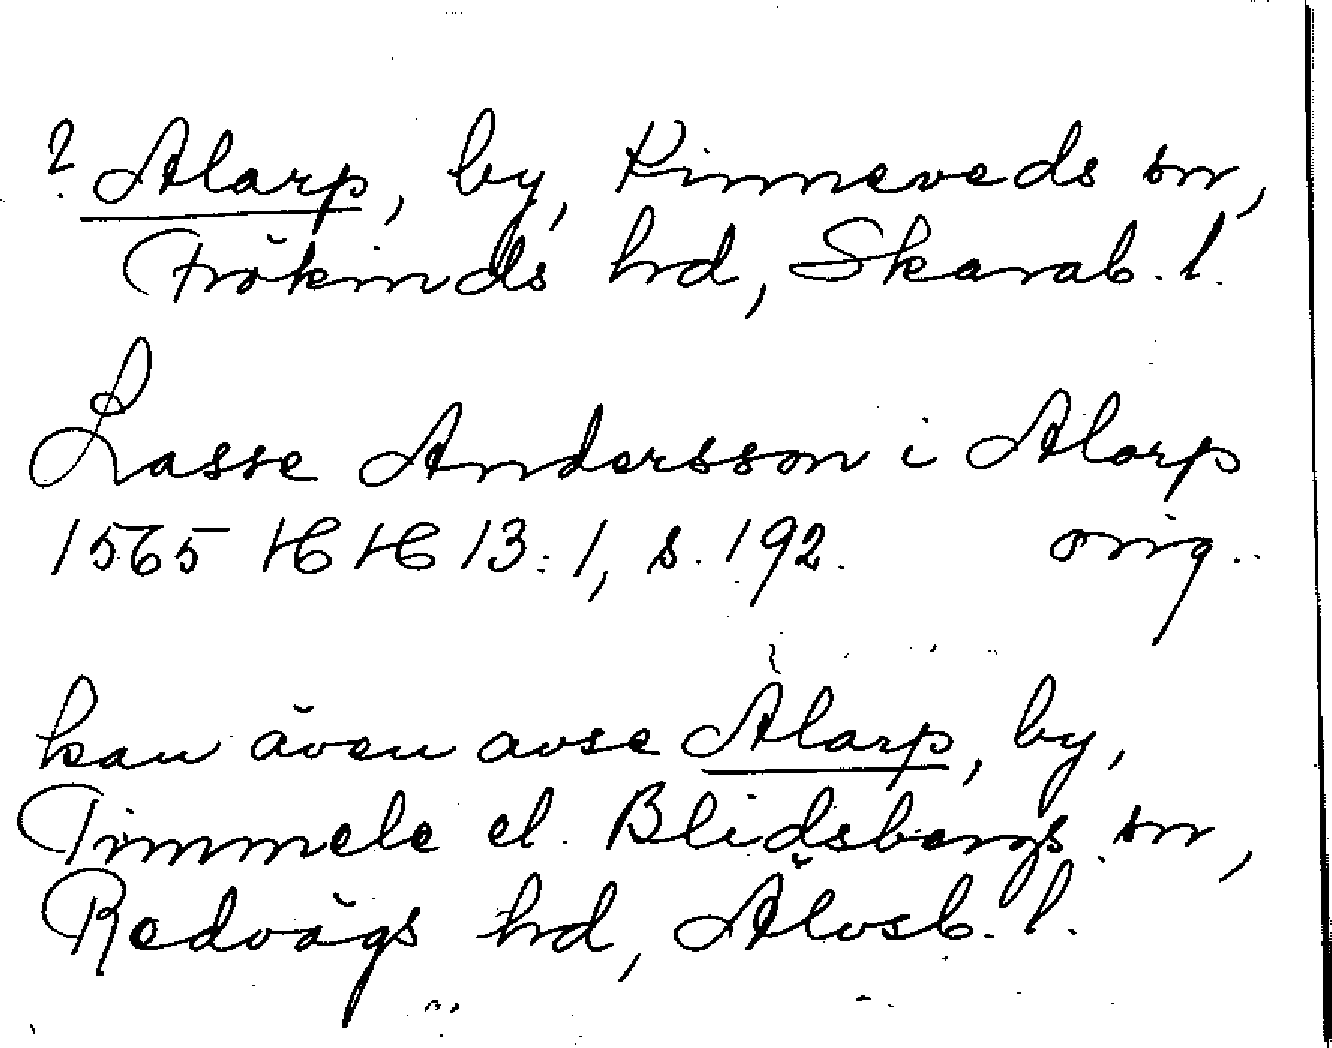 ? Alarp, by, Kinneveds sn,
Frökinds hd, Skarab. l.
Lasse Andersson i Alarp
1565 HH 13:1, s. 192. orig.
kan även avse Alarp, by,
Timmele el. Blidsbergs sn,
Redvägs hd, Älvsb. l.